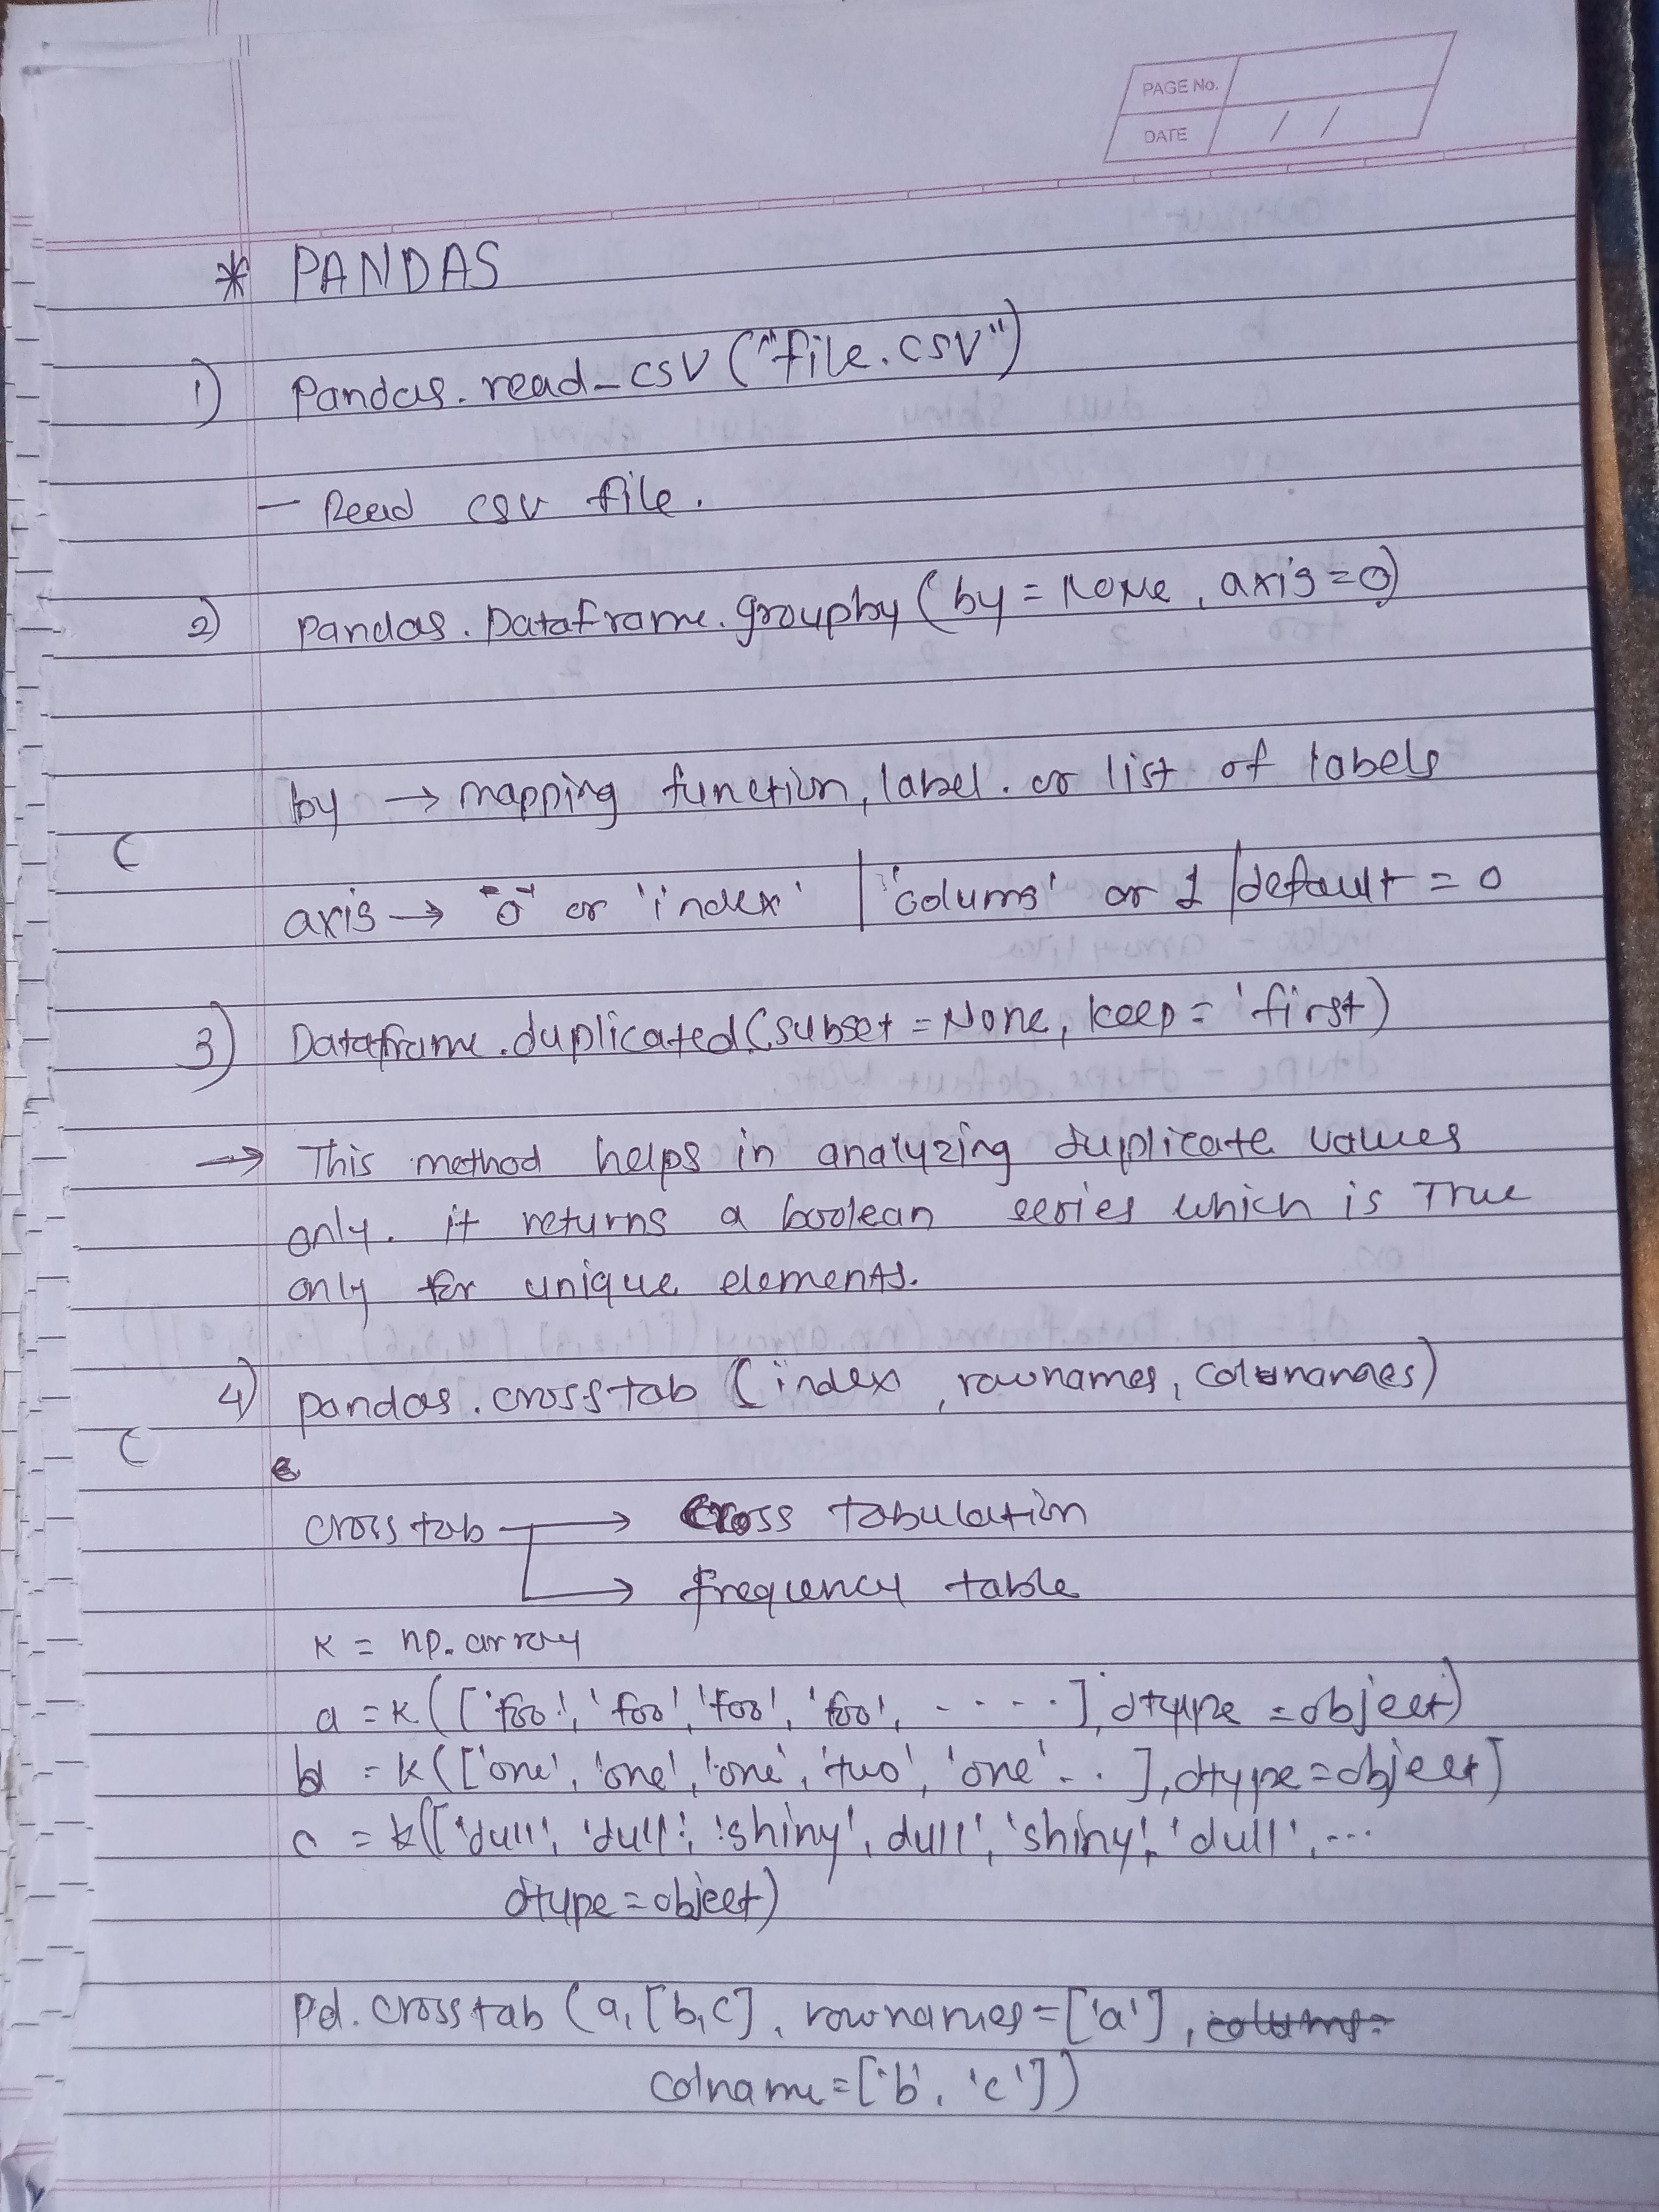 PAGE No.
DATE / /
* PANDAS
1) Pandas.read_csv ("file.csv")
- Read csv file.
2) Pandas.DataFrame.groupby (by = None, axis=0)
by → mapping function, label. or list of labels
axis → "0" or 'index' | 'colums' or 1 | default = 0
3) Dataframe.duplicated(subset = None, keep = 'first)
→ This method helps in analyzing duplicate values
only. it returns a boolean series which is True
only for unique elements.
4) pandas.crosstab (index, rownames, colunames)
crosstab → Cross tabulation
→ frequency table
K = np.array
a = K(['foo', 'foo', 'foo', 'foo', ....], dtype = object)
b = K(['one', 'one', 'one', 'two', 'one'..], dtype = object]
c = k(['dull', 'dull', 'shiny', dull', 'shiny', 'dull',...
dtype = object)
Pd.crosstab (a, [b,c], rownames = ['a'], colums=
colname = ['b', 'c'])